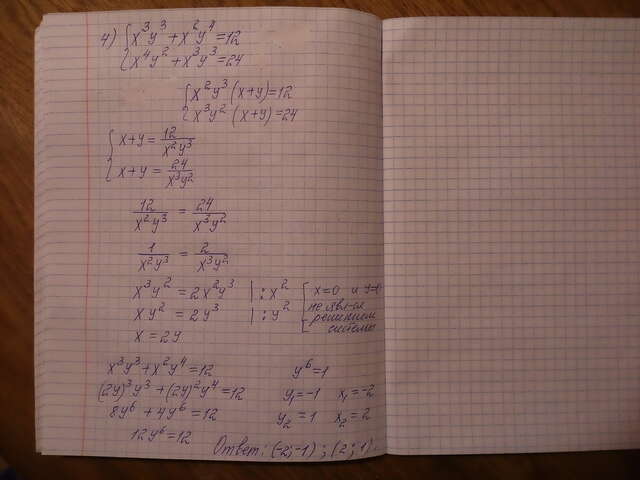 4) { x³y³ + x²y⁴ = 12
{ x⁴y² + x³y³ = 24
{ x²y³ (x+y) = 12
{ x³y² (x+y) = 24
{ x+y = 12/x²y³
{ x+y = 24/x³y²
12/x²y³ = 24/x³y²
1/x²y³ = 2/x³y²
x³y² = 2x²y³ | : x² [ x=0 и y=0
xy² = 2y³ | : y² не явл-ся
решением
x = 2y системы
x³y³ + x²y⁴ = 12
(2y)³y³ + (2y)²y⁴ = 12
8y⁶ + 4y⁶ = 12
12y⁶ = 12
y⁶ = 1
y₁ = -1 x₁ = -2
y₂ = 1 x₂ = 2
Ответ: (-2; -1) ; (2; 1).